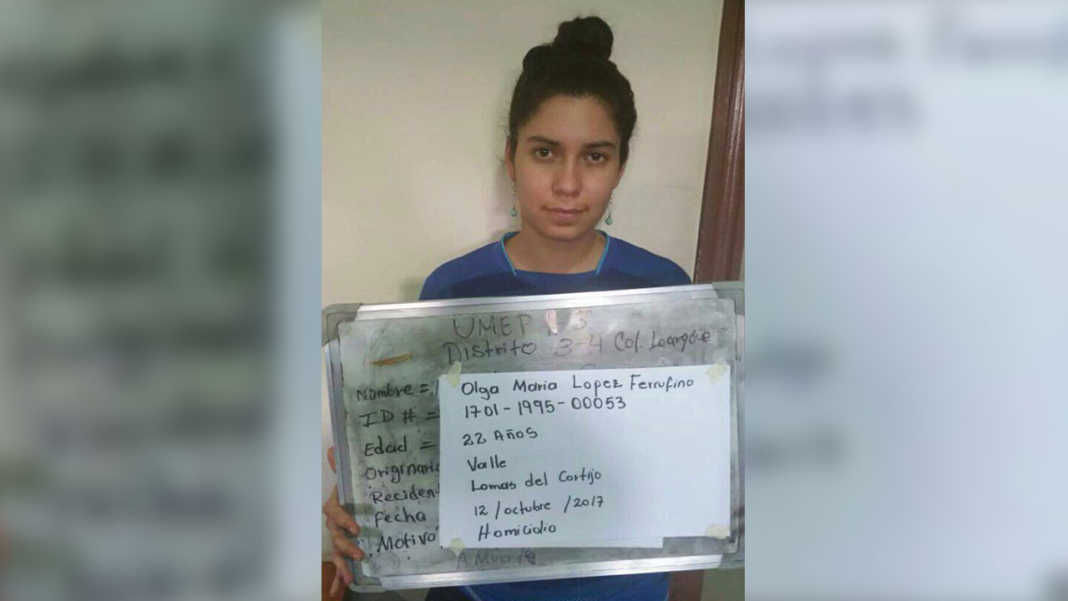 UMEP 3
Distrito 3-4 Col. Loarque
Nombre = Olga Maria Lopez Ferrufino
ID # = 1701-1995-00053
Edad = 22 Años
Originario Valle
Reciden Lomas del Cortijo
Fecha 12/octubre/2017
Motivo Homicidio